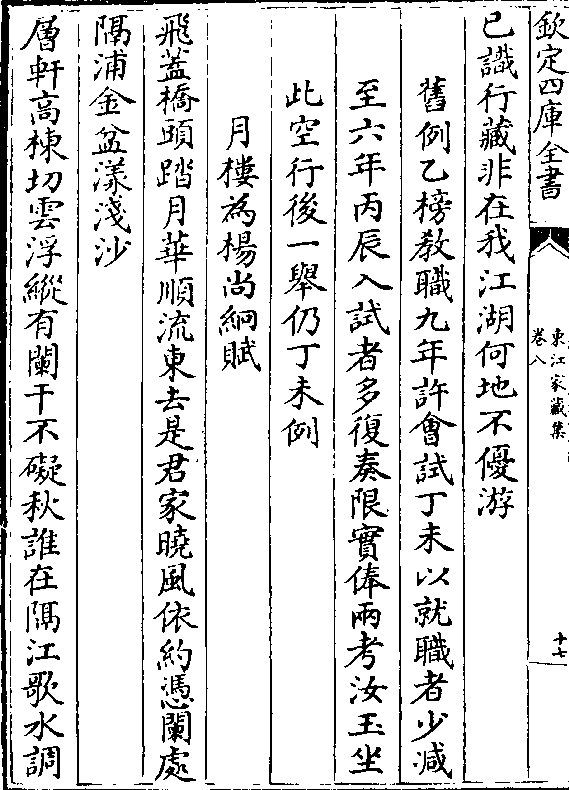 欽定四庫全書
東江家藏集
卷八
十七
已識行藏非在我江湖何地不優游
舊例乙榜教職九年許會試丁未以就職者少减
至六年丙辰入試者多復奏限實俸兩考汝玉坐
此空行後一舉仍丁未例
月樓為楊尚絅賦
飛蓋橋頭踏月華順流東去是君家曉風依約憑闌處
隔浦金盆漾淺沙
層軒高棟切雲浮縱有闌干不礙秋誰在隔江歌水調